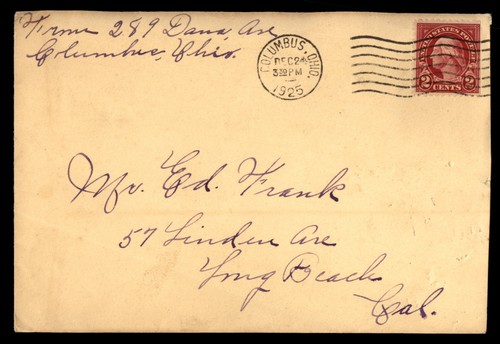 From 289 Dana, Ave
Columbus, Ohio.
COLUMBUS, OHIO.
DEC 24
3 30 PM
1925
UNITED STATES POSTAGE
2 CENTS 2
Mr. Ed. Frank
57 Linden Ave
Long Beach
Cal.